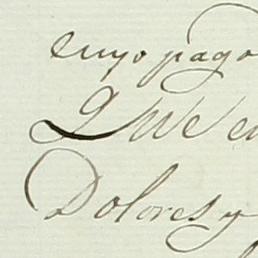 cuyo pago
Que en
Dolores y